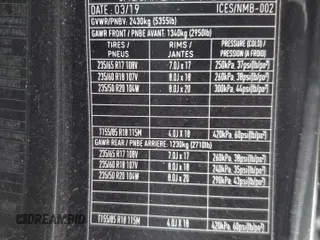 DATE : 03/19 ICES/NMB-002
GVWR/PNBV: 2430kg (5355lb)
GAWR FRONT / PNBE AVANT: 1340kg (2950lb)
TIRES / PNEUS RIMS / JANTES PRESSURE (COLD) / PRESSION (A FROID)
235/65 R17 108V 7.0J x 17 250kPa, 37psi(lb/po²)
235/60 R18 107V 8.0J x 18 260kPa, 38psi(lb/po²)
235/50 R20 104W 8.0J x 20 300kPa, 44psi(lb/po²)
T155/85 R18 115M 4.0J x 18 420kPa, 60psi(lb/po²)
GAWR REAR / PNBE ARRIERE: 1230kg (2710lb)
235/65 R17 108V 7.0J x 17 260kPa, 38psi(lb/po²)
235/60 R18 107V 8.0J x 18 240kPa, 35psi(lb/po²)
235/50 R20 104W 8.0J x 20 290kPa, psi(lb/po²)
T155/85 R18 115M 4.0J x 18 420kPa, 60psi(lb/po²)
DREAMBID